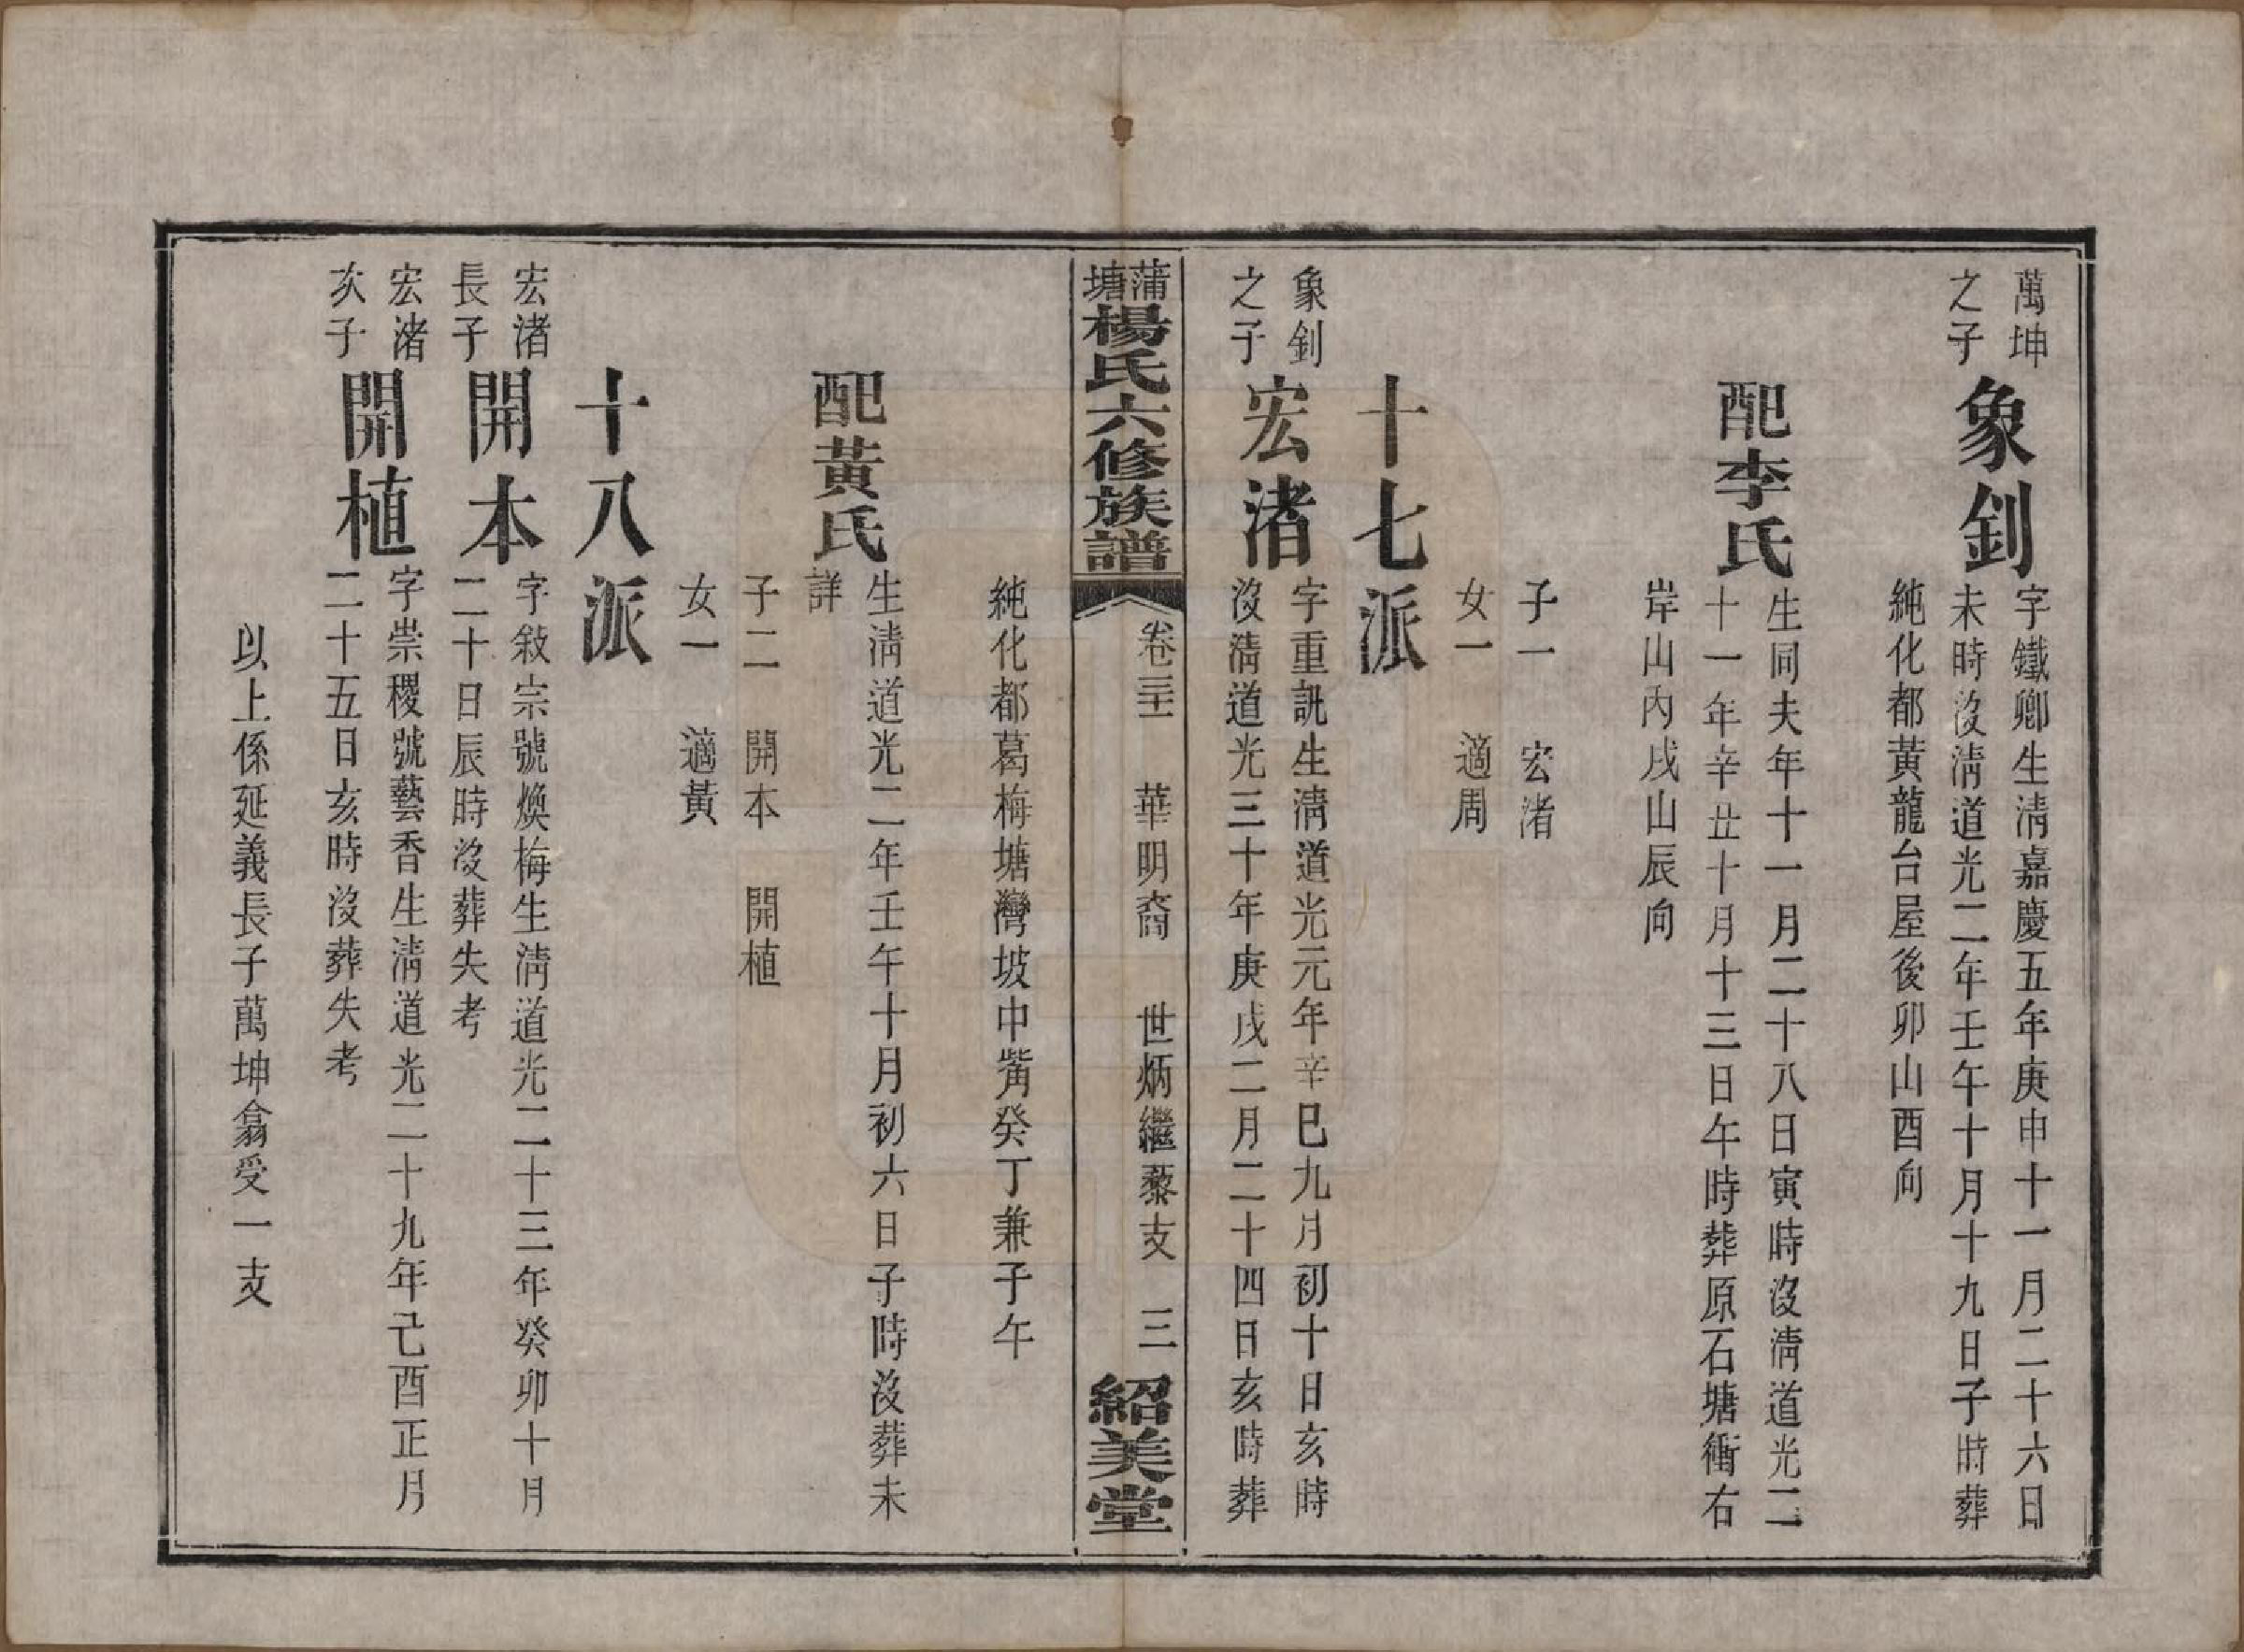 萬坤
之子
象釗
字鐵卿生淸嘉慶五年庚申十一月二十六日
未時沒淸道光二年壬午十月十九日子時葬
純化都黃龍台屋後卯山酉向
配李氏
生同夫年十一月二十八日寅時沒淸道光二
十一年辛丑十月十三日午時葬原石塘衝右
岸山內戌山辰向
子一　宏渚
女一　適周
十七派
象釗
之子
宏渚
字重訊生淸道光元年辛巳九月初十日亥時
沒淸道光三十年庚戌二月二十四日亥時葬
蒲塘楊氏六修族譜
卷三十一　華明裔　世炳繼藜支　三
紹美堂
純化都葛梅塘灣坡中嘴癸丁兼子午
配黃氏
生淸道光二年壬午十月初六日子時沒葬未
詳
子二　開本　開植
女一　適黃
十八派
宏渚
長子
開本
字敍宗號煥梅生淸道光二十三年癸卯十月
二十日辰時沒葬失考
宏渚
次子
開植
字崇稷號藝香生淸道光二十九年己酉正月
二十五日亥時沒葬失考
以上係延義長子萬坤翕受一支